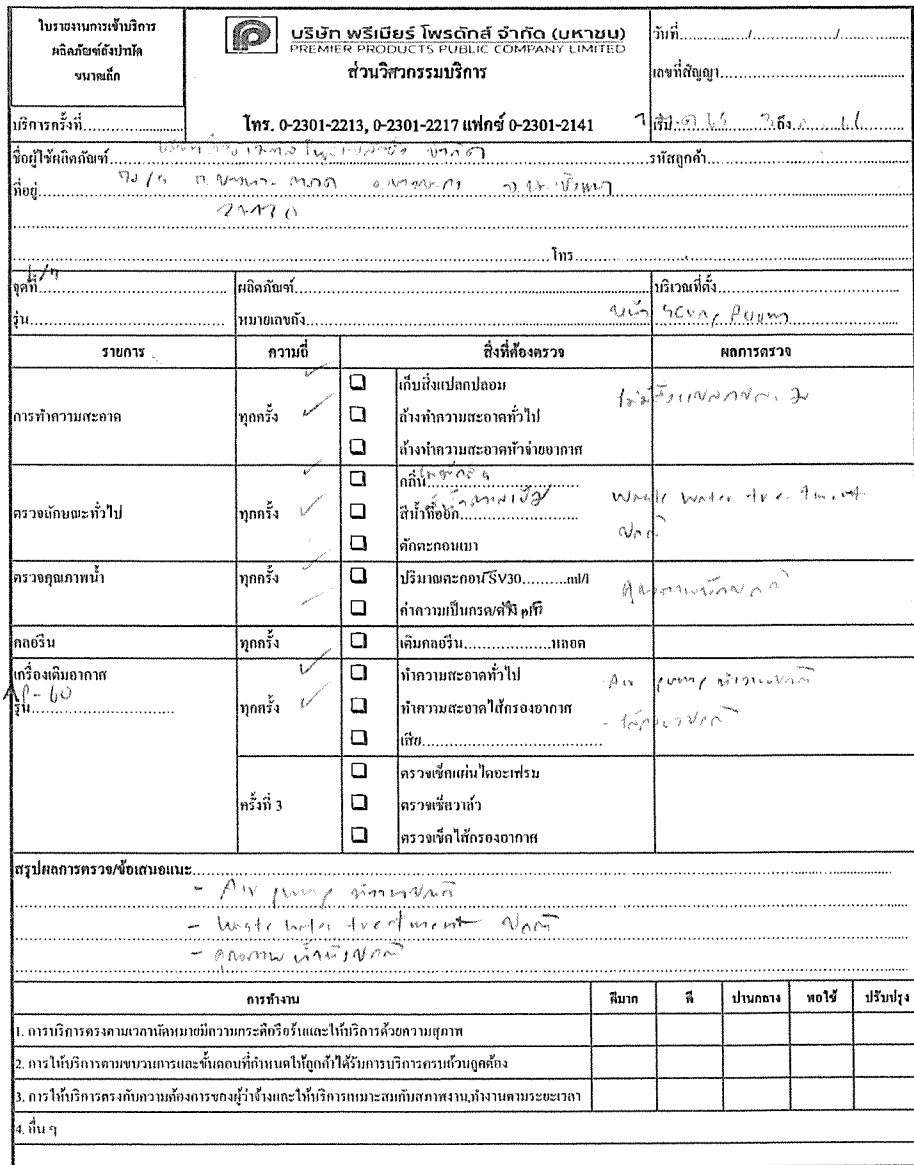 ใบรายงานการเข้าบริการ
ผลิตภัณฑ์ถังบำบัด
ขนาดเล็ก
บริการครั้งที่
บริษัท พรีเมียร์ โพรดักส์ จำกัด (มหาชน)
PREMIER PRODUCTS PUBLIC COMPANY LIMITED
ส่วนวิศวกรรมบริการ
โทร. 0-2301-2213, 0-2301-2217 แฟกซ์ 0-2301-2141
วันที่............/............/............
เลขที่สัญญา
เริ่ม ถึง
ชื่อผู้ใช้ผลิตภัณฑ์ จำกัด รหัสลูกค้า
ที่อยู่
โทร
จุดที่ ผลิตภัณฑ์ บริเวณที่ตั้ง
รุ่น หมายเลขถัง
รายการ ความถี่ สิ่งที่ต้องตรวจ ผลการตรวจ
การทำความสะอาด ทุกครั้ง
☐ เก็บสิ่งแปลกปลอม
☐ ล้างทำความสะอาดทั่วไป
☐ ล้างทำความสะอาดหัวจ่ายอากาศ
ไม่มีสิ่งแปลกปลอม
ตรวจลักษณะทั่วไป ทุกครั้ง
☐ กลิ่น
☐ สีน้ำที่ออก
☐ ตักตะกอนเบา
Waste Water treatment
ปกติ
ตรวจคุณภาพน้ำ ทุกครั้ง
☐ ปริมาณตะกอน SV30..........ml/l
☐ ค่าความเป็นกรด/ด่าง pH?
คลอรีน ทุกครั้ง ☐ เติมคลอรีน...................หลอด
เครื่องเติมอากาศ
รุ่น AP-60
ทุกครั้ง
☐ ทำความสะอาดทั่วไป
☐ ทำความสะอาดไส้กรองอากาศ
☐ เสีย
- Air pump ทำงานปกติ
ครั้งที่ 3
☐ ตรวจเช็คแผ่นไดอะเฟรม
☐ ตรวจเช็ควาล์ว
☐ ตรวจเช็คไส้กรองอากาศ
สรุปผลการตรวจ/ข้อเสนอแนะ
- Air pump ทำงานปกติ
- Waste water treatment ปกติ
- คุณภาพน้ำทิ้งปกติ
การทำงาน ดีมาก ดี ปานกลาง พอใช้ ปรับปรุง
1. การบริการตรงตามเวลานัดหมายมีความกระตือรือร้นและให้บริการด้วยความสุภาพ
2. การให้บริการตามขบวนการและขั้นตอนที่กำหนดให้ลูกค้าได้รับการบริการครบถ้วนถูกต้อง
3. การให้บริการตรงกับความต้องการของผู้ว่าจ้างและให้บริการเหมาะสมกับสภาพงาน,ทำงานตามระยะเวลา
4. อื่น ๆ